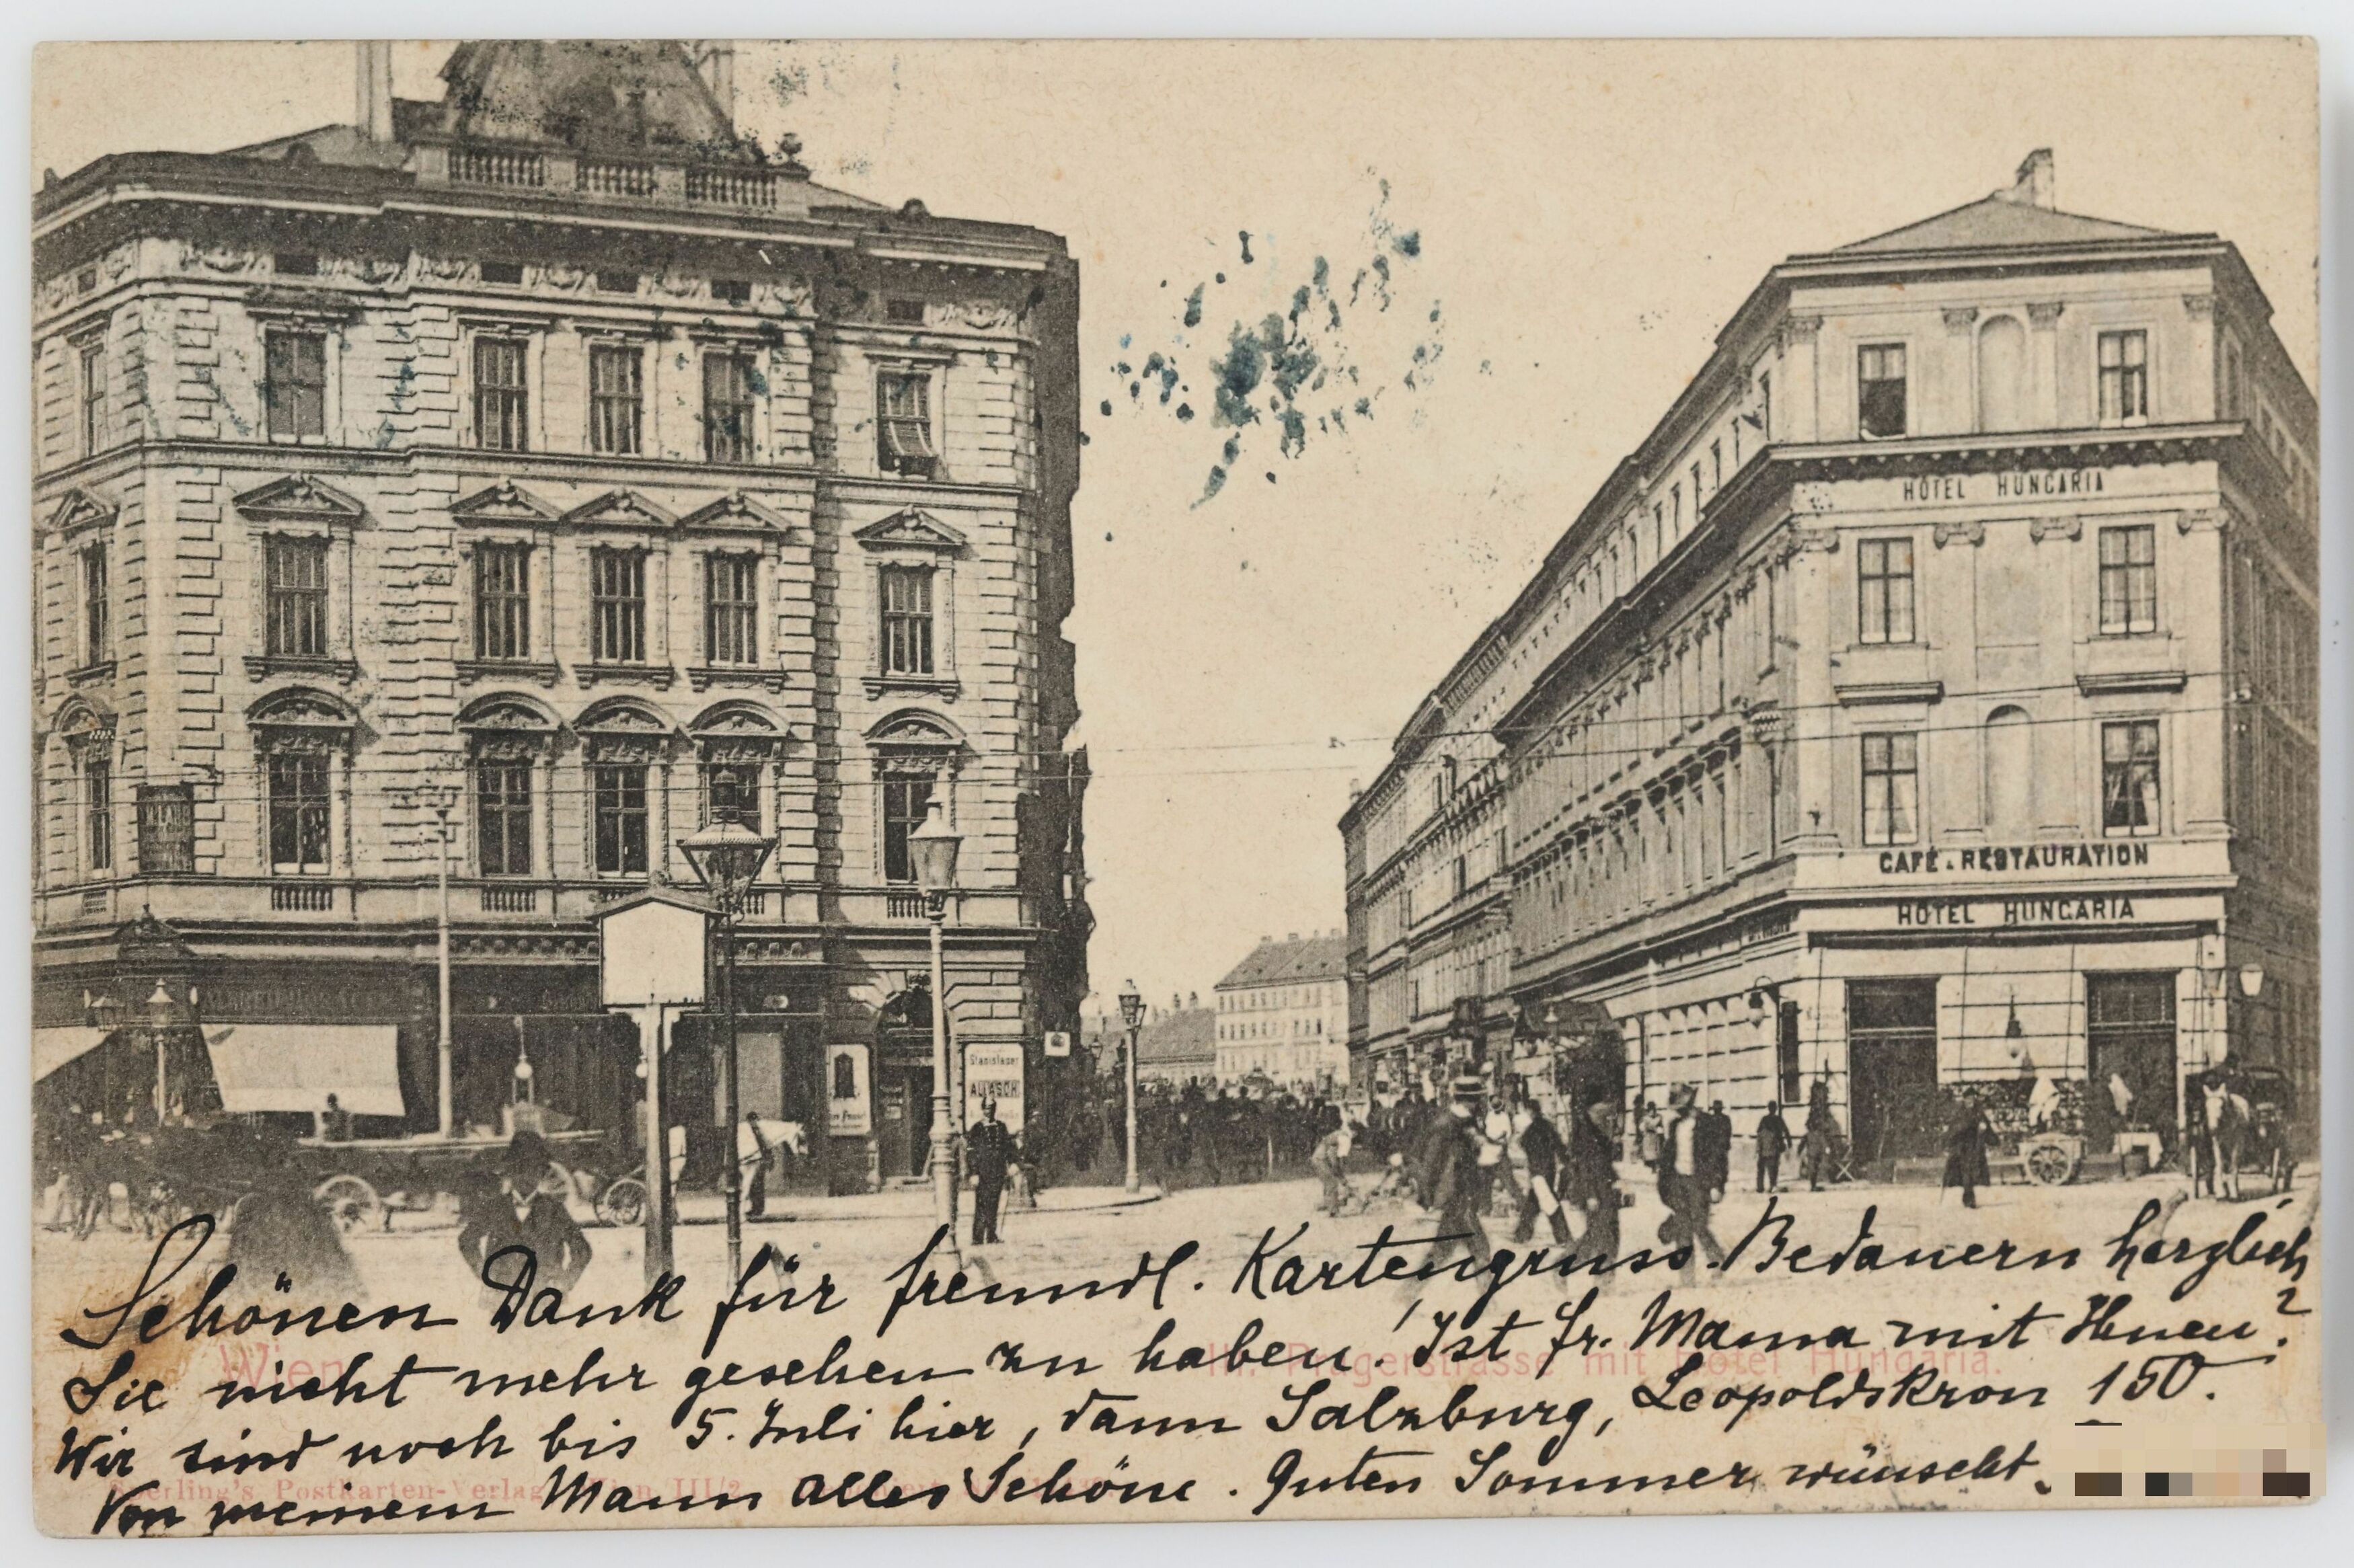 HOTEL HUNGARIA
CAFÉ-RESTAURATION
HOTEL HUNGARIA
Stanislauer
Schönen Dank für freundl. Kartengruss. Bedauern herzlich
Sie nicht mehr gesehen zu haben! Ist fr. Mama mit Ihnen?
Wir sind noch bis 5. Juli hier, dann Salzburg, Leopoldskron 150.
Von meinem Mann alles Schöne. Guten Sommer wünscht
Wien
III. Pragerstrasse mit Hotel Hungaria.
Sperling's Postkarten-Verlag, Wien III/2